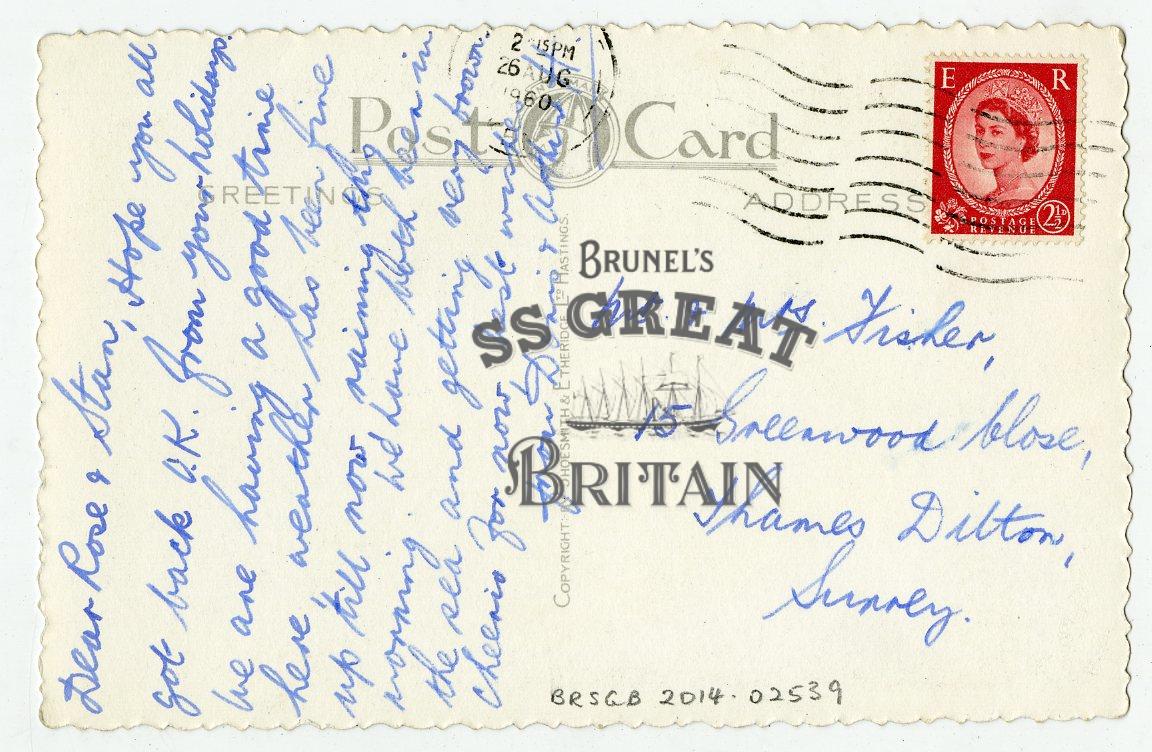 Post Card
GREETINGS
ADDRESS
2-15PM
26 AUG
1960
E R
POSTAGE
REVENUE
2½D
Dear Rose & Stan, Hope you all
got back O.K. from your holidays.
We are having a good time
here weather has been fine
up till now raining this
morning. We have both been in
the sea and getting very brown.
Cheerio for now best wishes
from
& Arthur
COPYRIGHT: BY SHOESMITH & ETHERIDGE LTD HASTINGS.
BRUNEL'S
SS GREAT
BRITAIN
Mr. & Mrs. Fisher,
15 Greenwood Close,
Thames Ditton,
Surrey.
BRSGB 2014.02539